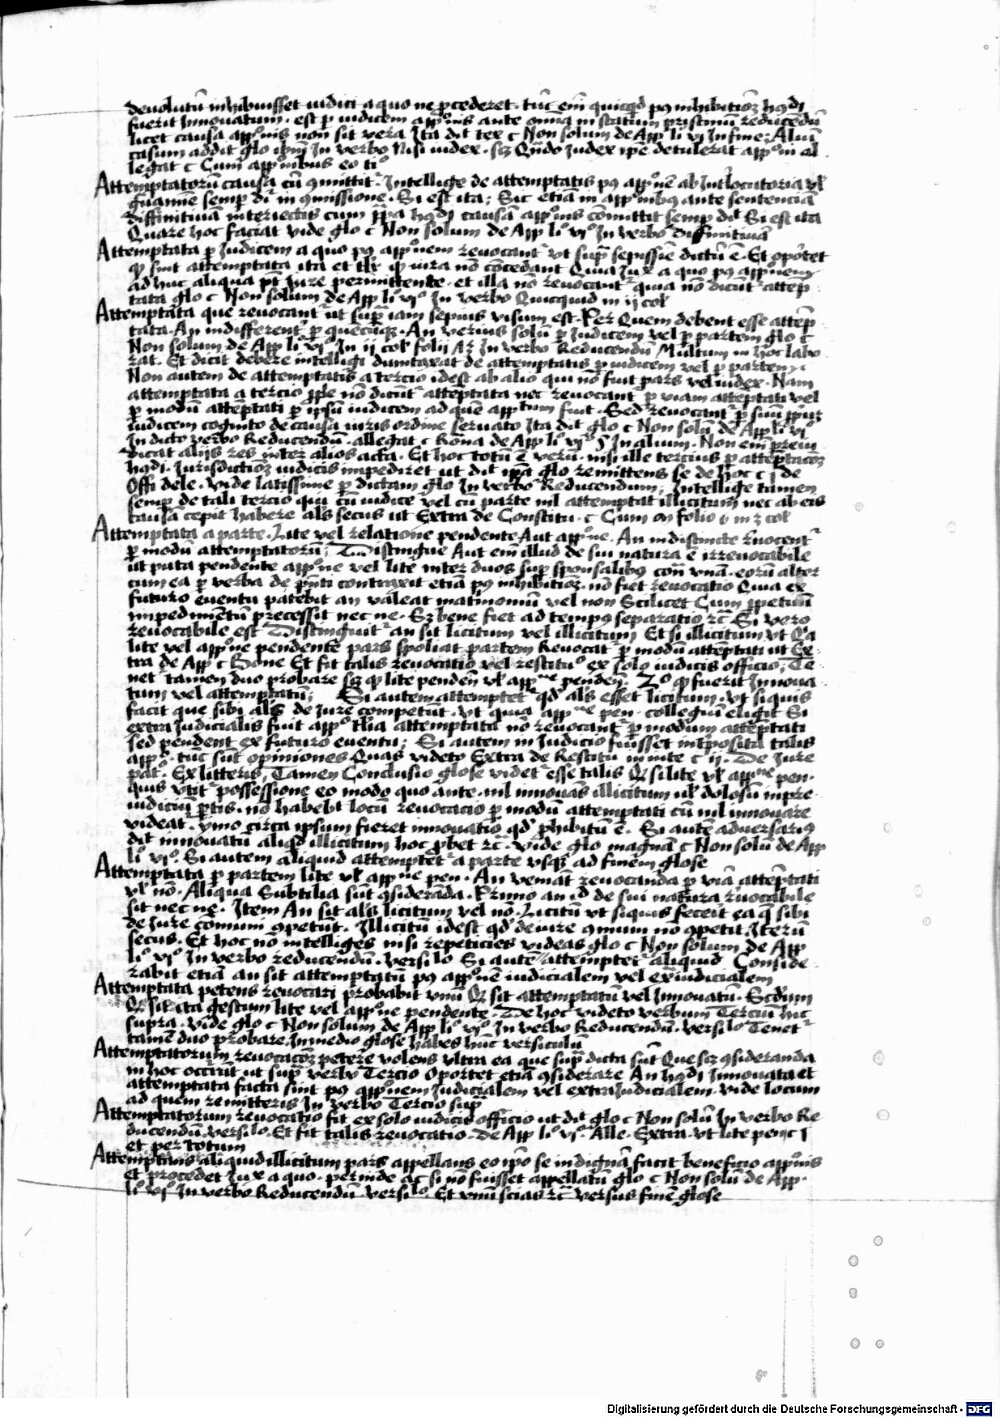 deuolutū inhibuisset iudici a quo ne ꝑcederet. tūc em̄ quicqd pꝰ inhibitiōꝫ hꝰdi
fuerit Innouatum. est ꝑ iudicem appᵒnis ante omnia in statum pristinū reducendū
licet causa appᵒnis non sit vera Ita dīt tex c Non solum de App li vi In fine; Aliū
casum addit glo ibm̄ In verbo Nisi iudex. sꝫ Qn̄do Iudex ip̄e detulerat appᵒni al
legat c Cum appᵒnibus eo tiᵒ
Attemptatorū causa cū ꝯmittitᷣ Intellige de attemptatis pꝰ appᵒnē ab Intlocutoria vl̓
Si est ita; Sic etiā in appᵒnibꝰ ante sentenciā
diffinitiuā interiectis cum causā appᵒnis cōmittit semp dīt Si est ita
Quare hoc faciat vide glo c Non solum de App liᵒ viᵒ In verbo diffinitiuā
Attemptata ꝑ Iudicem a quo pꝰ appᵒnem reuocantᷣ vt supᷓ sepissiē dictū ē. Et oportet
ꝙ sint attemptata ita et ꝙ iura nō cōcedant Quia Iux a quo pꝰ appᵒnem
ad huc aliqua pt̄ Iure permittente. et illa nō reuocantᷣ quia nō dicūtᷣ attēp
tata glo c Non solum de App liᵒ viᵒ In verbo Quicquid in ij col
Attemptata que reuocantᷣ ut supᷓ iam sepius visum est. Per Quem debent esse attēp
tata. An indifferentᷣ ꝑ quecūqꝫ. An verius solū ꝑ Iudicem vel ꝑ partem glo c
Non solum de App liᵒ viᵒ In ij col folij In verbo Reducendū Multum in hoc labo
rat. Et dicit debere intelligi dumtaxat de attemptatis ꝑ iudicem vel ꝑ partem;
Non autem de attemptatis a tercio idest ab alio qui nō fuit pars vel iudex. Nam
attemptata a tercio nō dicūtᷣ attēptata nec reuocantᷣ ꝑ viam attēptati vel
ꝑ modū attēptati ꝑ ipsū iudicem ad quē appᵒtum fuit. Sed reuocantᷣ ꝑ suū
iudicem cognito de causa iuris ordine seruato Ita dīt glo c Non solū de App liᵒ viᵒ
In dicto verbo Reducendū. allegat c Rōna de App liᵒ viᵒ Non em̄ preiu
dicat alijs res inter alios acta. Et hoc totū ē verū. nisi ille tercius ꝑ attēptacōꝫ
hꝰdi. Iurisdictiōꝫ iudicis impediret ut dīt glo remittens se de hoc c j de
Offi dele. vide latissime ꝑ dictam glo In verbo Reducendum; Intellige tamen
semp de tali tercio cū iudice vel cū parte nil attemptat illicitum nec ab eis
causā cepit habere als secus ut Extra de Constitu. c Cum folio
Attemptata a parte. Lite vel relatione pendente Aut appᵒne. An indistincte
ꝑ modū attemptatorū; Distingue Aut em̄ illud de sui natura ē irreuocabile
ut puta pendente appᵒne vel lite inter duos supᷓ sponsalibꝰ vnā. eorū alter
cum ea ꝑ verba de pn̄ti contraxit etiā pꝰ inhibitiōꝫ. nō fiet reuocatio Quia ex
futuro euentu patebit an valeat matrimoniū vel non Scilicet Cum
impedimētū precessit nec ne. Sꝫ bene fiet ad tempꝰ separatio rc̄ Si vero
reuocabile est Distinguitᷣ an sit licitum vel illicitum Et si illicitum
lite vel appᵒne pendente pars spoliat partem Reuocatᷣ ꝑ modū attēptati ut Ex
tra de App c Bone Et fit talis reuocatio vel restitutᵒ ex solo iudicis officio; Te
netᷣ tamen duo probare sꝫ ꝙ lite pendenti vl̓ appᵒne pendenti. 2ᵒ ꝙ fuerit Innoua
tum vel attemptatū; Si autem attemptetᷣ qd als esset licitum. vt siquis
facit que sibi als de Iure competūt. vt quia appᵒne pen. collegiū eligit Si
extra Iudicialis fuit appᵒ attemptata nō reuocantᷣ ꝑ modum attēptati
sed pendent ex futuro euentu; Si autem in Iudicio fuisset intposita talis
appᵒ. tūc sūt opiniones Quas videto Extra de Restitu in inte c ij. De Iure
patᵒ. Ex litteris, Tamen Conclusio glose videtᷣ esse talis Qꝫ si lite vl̓ appᵒne pen.
quis vtitᷣ possessione eo modo quo ante. nil innouās illicitum vl̓ dolosū inpre
iudiciū ꝑtis. nō habebt locū reuocacio ꝑ modū attemptati cū nil innouare
videatᷣ. ymo circa ipsum fieret innouatio qd ꝓhibitū ē. Si autē aduersariꝰ
dīt innouatū aliqd illicitum hoc ꝓbet rc̄. vide glo magnā c Non solū de App
liᵒ viᵒ. Si autem aliquid attemptetᷣ a parte vsqꝫ ad finem glose
Attemptata ꝑ partem lite vl̓ appᵒne pen. An veniāt reuocanda ꝑ viā attēptati
vl̓ nō. Aliqua Subtilia sūt ꝯsiderāda. Primo an id de sui natura
sit nec ne. Item An sit als licitum vel nō. Licitū vt siquis fecerit ea q̄ sibi
de Iure comuni ꝯpetūt. Illicitū idest qd de iure ꝯmuni nō ꝯpetit. Iterū
secus. Et hoc nō intelliges nisi repeticies videas glo c Non solum de App
liᵒ viᵒ In verbo reducendū. versi. lo Si autē attemptetᷣ aliquid Conside
rabit etiā an sit attemptatū pꝰ appᵒnē iudicialem vel exᷓiudicialem
Attemptata petens reuocari probabit vnū Qꝫ sit attemptatū vel Innouatū. Scdum
Qꝫ sit ita gestum lite vel appᵒne pendente. De hoc videto verbum Terciū hic
supra. Vide glo c Non solum de App liᵒ viᵒ In verbo Reducendū. versi. lo Tenetᷣ
tamē duo probare. In medio glose habes huc versiculu
Attemptatorum reuocacōꝫ petere volens vltra ea que supᷓ dicta sūt Que sꝫ ꝯsideranda
in hoc occīrūt ut supᷓ verbo Tercio Oportet etiā ꝯsiderare An hꝰdi Innouata et
attemptata facta sint pꝰ appᵒnem Iudicialem vel extraIudicialem. Vide locum
ad quem remitteris In verbo Tercio supᷓ
Attemptatorum reuocatio fit ex solo iudicis officio ut dīt glo c Non solū In verbo Re
ducendū. versi. lo. Et fit talis reuocatio. De App liᵒ viᵒ. Alle. Extra. vt lite pen c j
et per totum
Attemptans aliquid illicitum pars appellans eo ipo se indignā facit beneficio appᵒnis
et procedet Iux a quo. perinde ac si nō fuisset appellatū glo c Non solū de App.
liᵒ viᵒ In verbo Reducendū versi. lo. Et vnū scias rc̄ versus finē glose
Digitalisierung gefördert durch die Deutsche Forschungsgemeinschaft - DFG